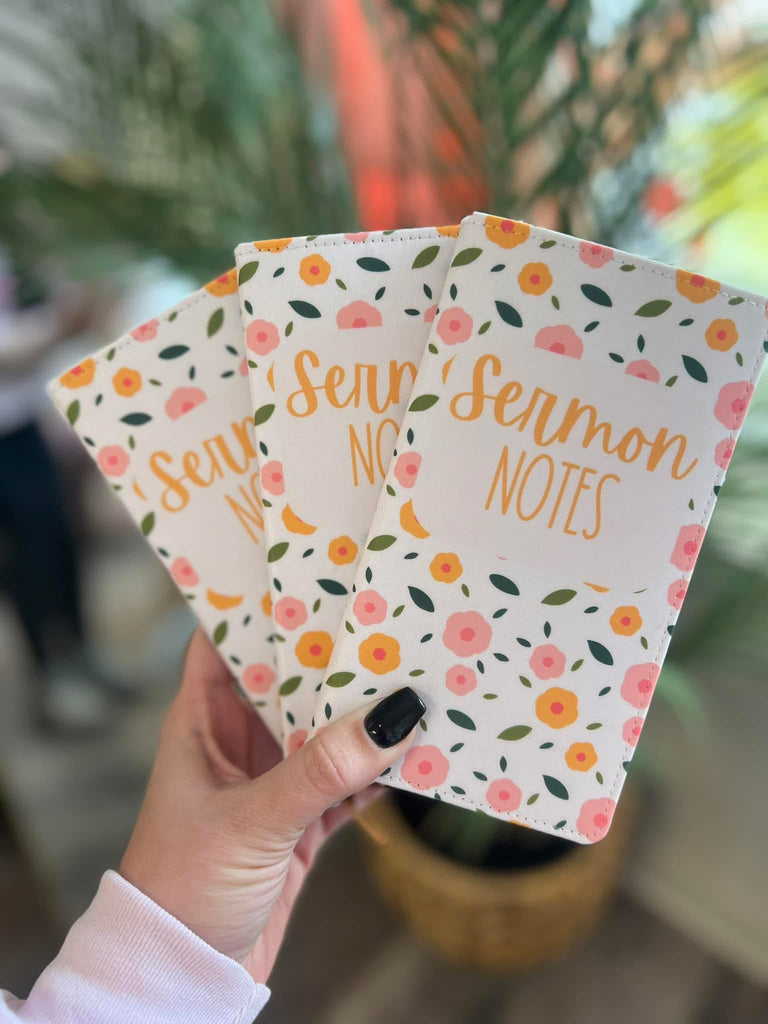 Sermon
NOTES
Sermon
NOTES
Sermon
NOTES